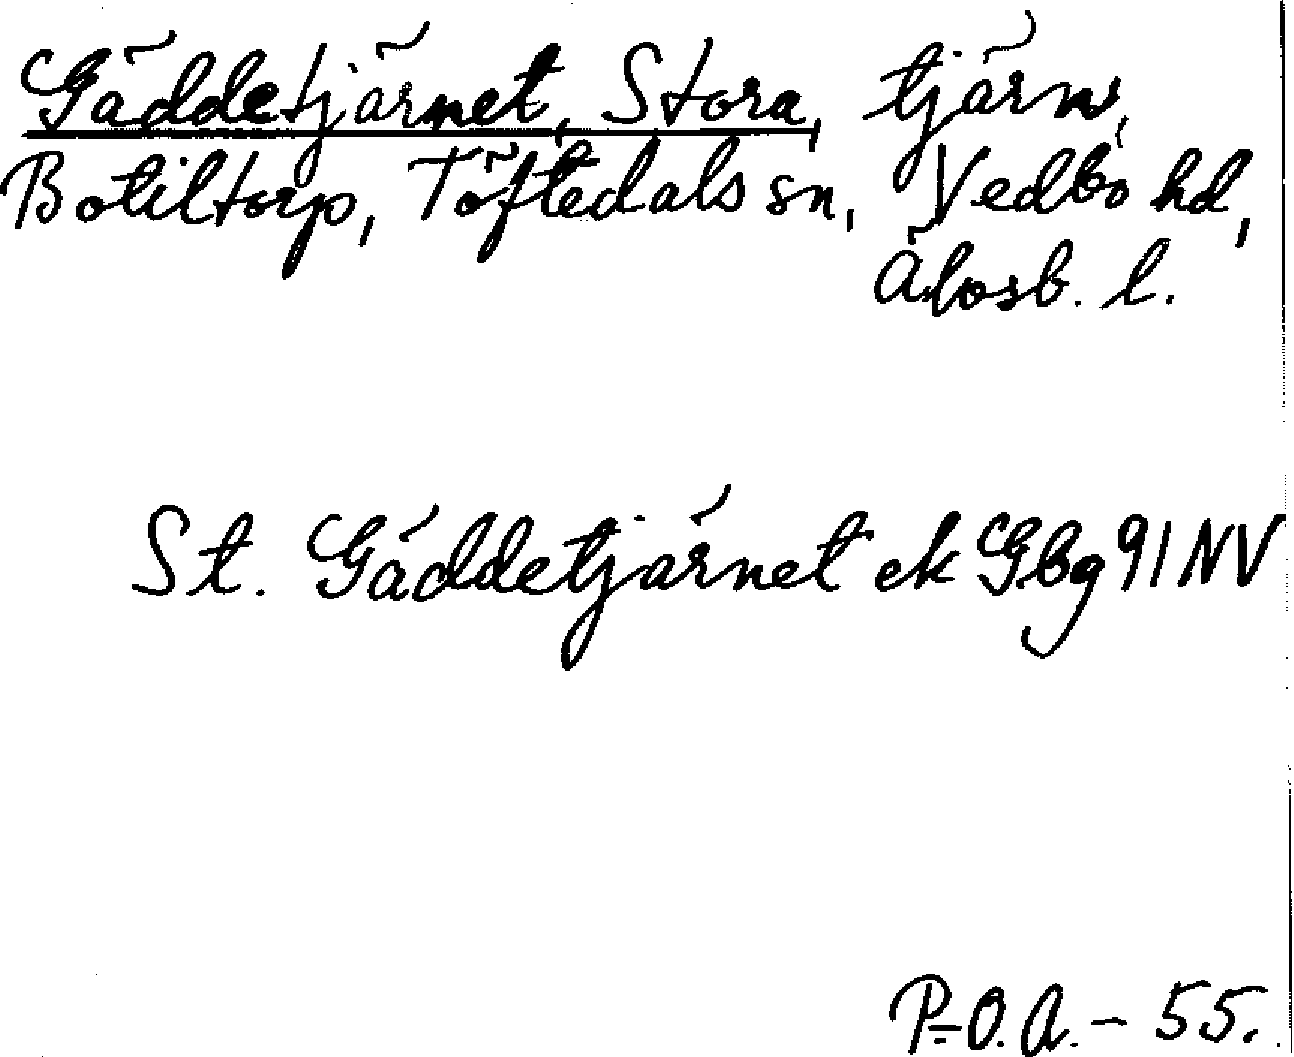 Gäddetjärnet, Stora, tjärn,
Botiltorp, Töftedals sn, Vedbo hd,
Älvsb. l.
St. Gäddetjärnet ek Gbg 91 NV
P-O.A. - 55.